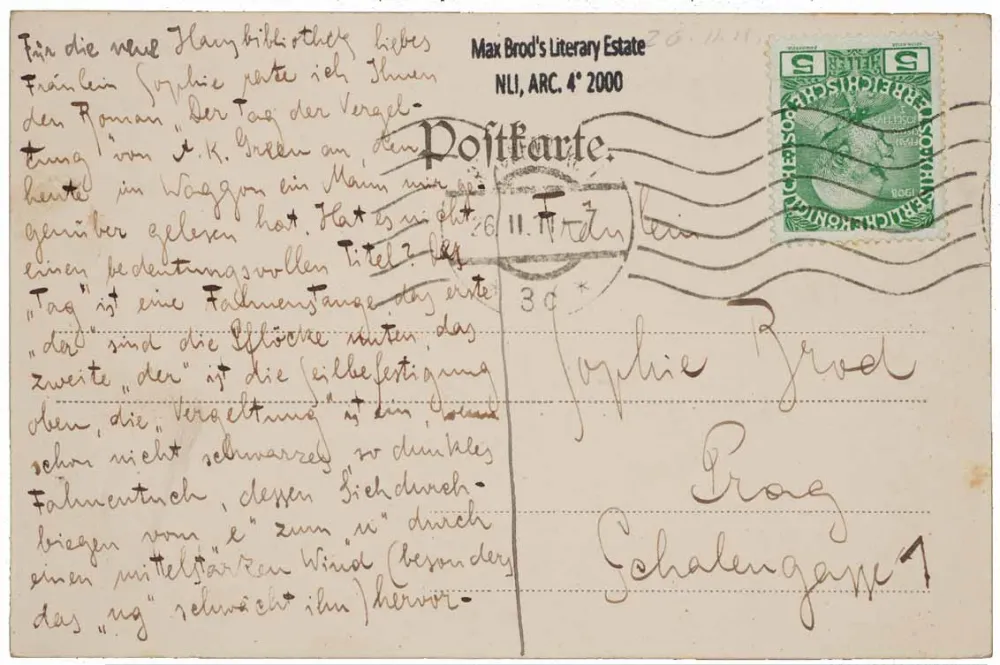 Für die neue Hausbibliothek liebes
Fräulein Sophie rate ich Ihnen
den Roman „Der Tag der Vergel-
tung" von A. K. Green an, den
heute im Waggon ein Mann mir ge-
genüber gelesen hat. Hat es nicht
einen bedeutungsvollen Titel? Der
„Tag" ist eine Fahnenstange, das erste
„der" sind die Pflöcke unten, das
zweite „der" ist die Seilbefestigung
oben, die „Vergeltung" ist ein, wenn
schon nicht schwarzes, so dunkles
Fahnentuch, dessen Sichdurch-
biegen vom „e" zum „u" durch
einen mittelstarken Wind (besonders
das „ng" schwächt ihn) hervor-
Max Brod's Literary Estate
NLI, ARC. 4° 2000
Postkarte.
26 II. 11-7
3c *
Fräulein
Sophie Brod
Prag
Schalengasse 1
5 HELLER 5
1908